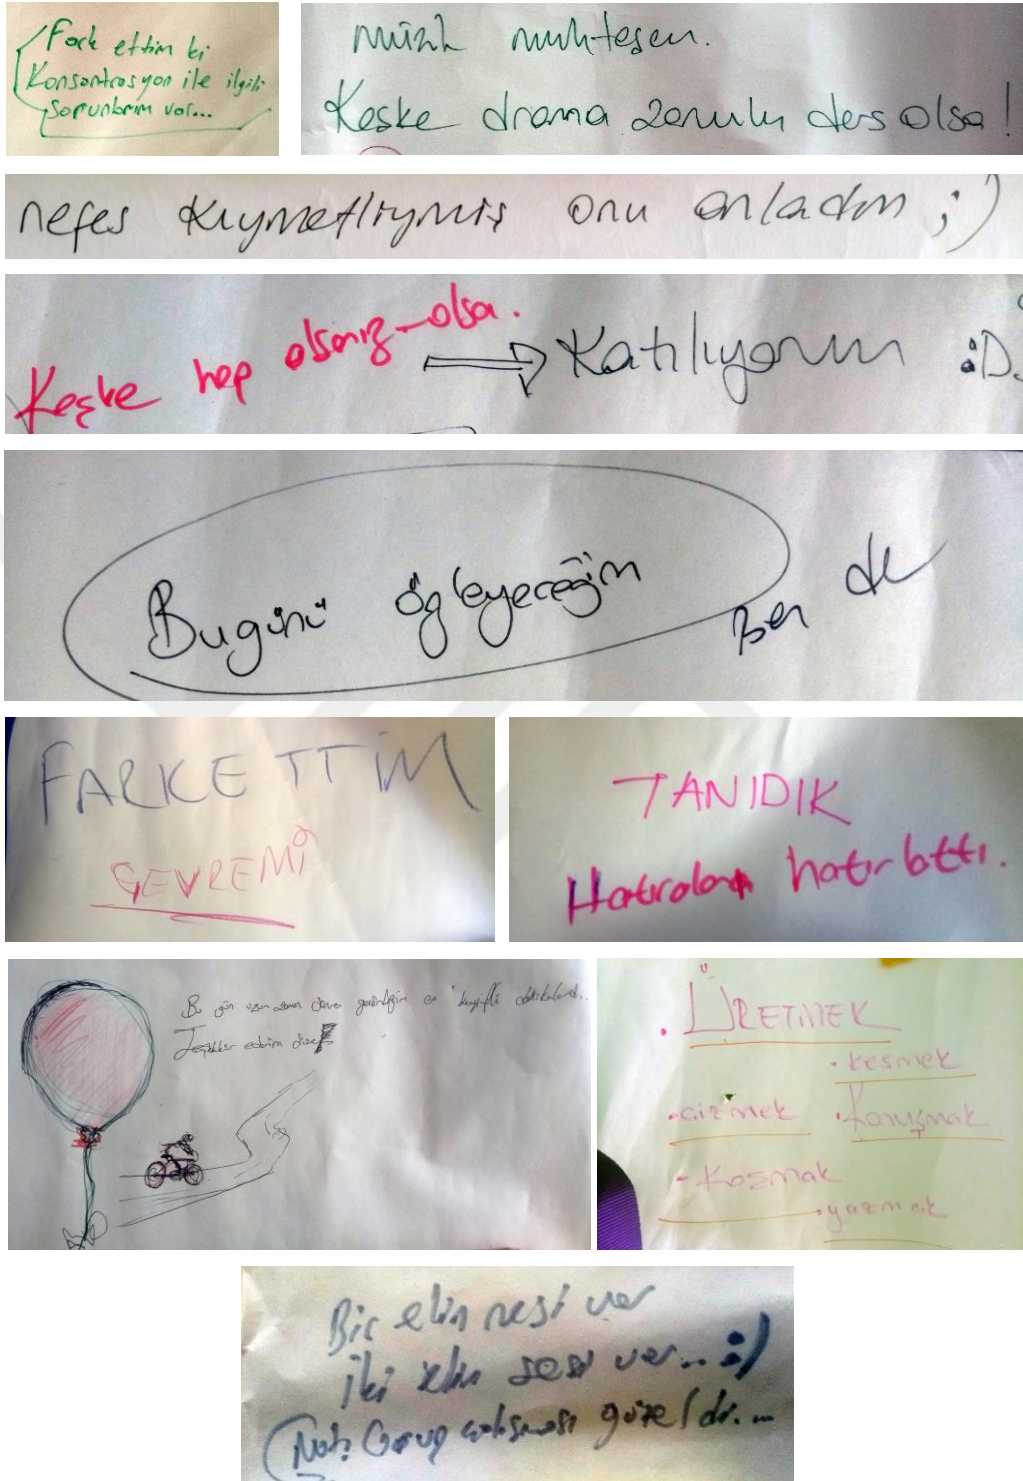 Fark ettim ki
Konsantrasyon ile ilgili
sorunlarım var...
müzik muhteşem.
Keşke drama zorunlu ders olsa!
nefes kıymetliymiş onu anladım ;)
Keşke hep olsanız olsa. ⇒ Katılıyorum :D
Bugünü özleyeceğim
Ben de
FARKETTİM
ÇEVREMİ
TANIDIK
Hatıraları hatırlattı.
Bu gün uzun zaman geçirdiğim en keyifli dakikalardı..
Teşekkür ederim size
. ÜRETMEK
. kesmek
. çizmek . Konuşmak
- Kazmak
. yazmak
Bir elin nesi var
iki elin sesi var... :)
(Not: Grup çalışması güzeldi...